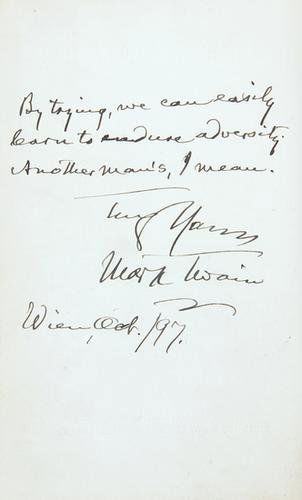 By trying, we can easily
learn to endure adversity.
Another man's, I mean.
Truly Yours
Mark Twain
Wien, Oct. /97.